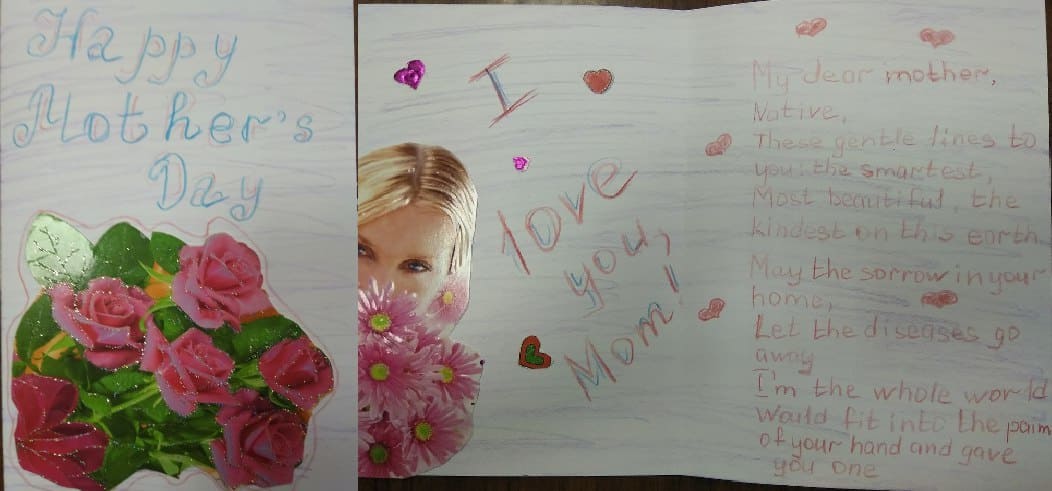 Happy
Mother's
Day
I
love
you,
Mom!
My dear mother,
Native,
These gentle lines to
you: the smartest,
Most beautiful, the
kindest on this earth.
May the sorrow in your
home,
Let the diseases go
away
I'm the whole world
Would fit into the paim
of your hand and gave
you one